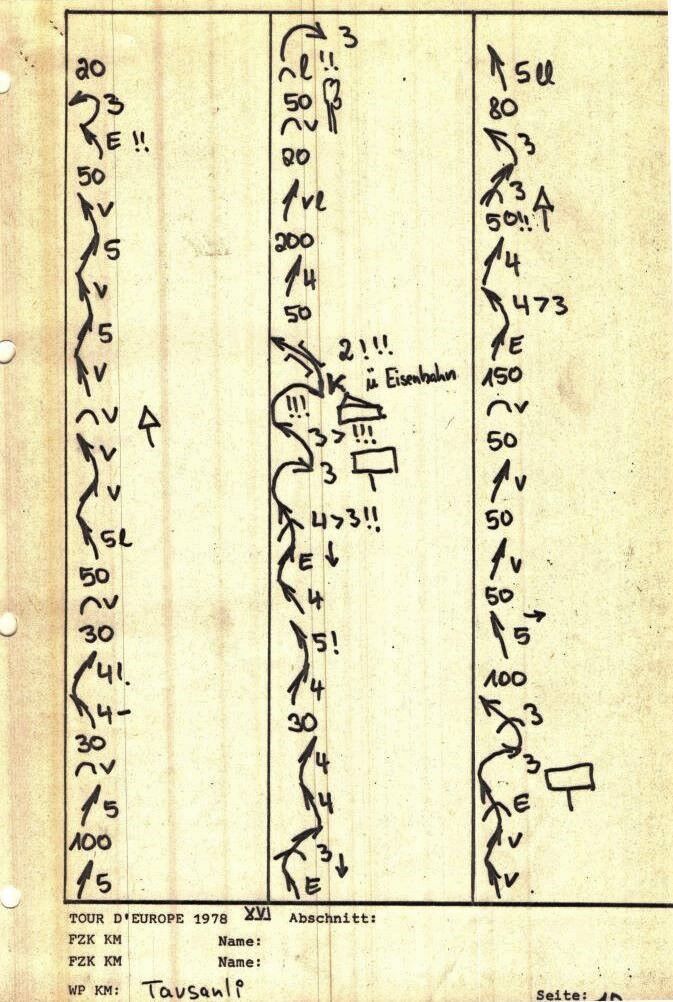 20
3
E !!
50
V
5
V
5
V
V
V
V
5l
50
V
30
4!
4-
30
V
5
100
5
3
l !!
50
V
20
vl
200
4
50
2!!!
K ü Eisenbahn
!!!
3> !!!
3
4>3!!
E
4
5!
4
30
4
4
3
E
5 ll
80
3
3
50!!
4
4>3
E
150
V
50
V
50
V
50
5
100
3
3
E
V
V
TOUR D'EUROPE 1978 XVI Abschnitt:
FZK KM Name:
FZK KM Name:
WP KM: Tavsanli
Seite: